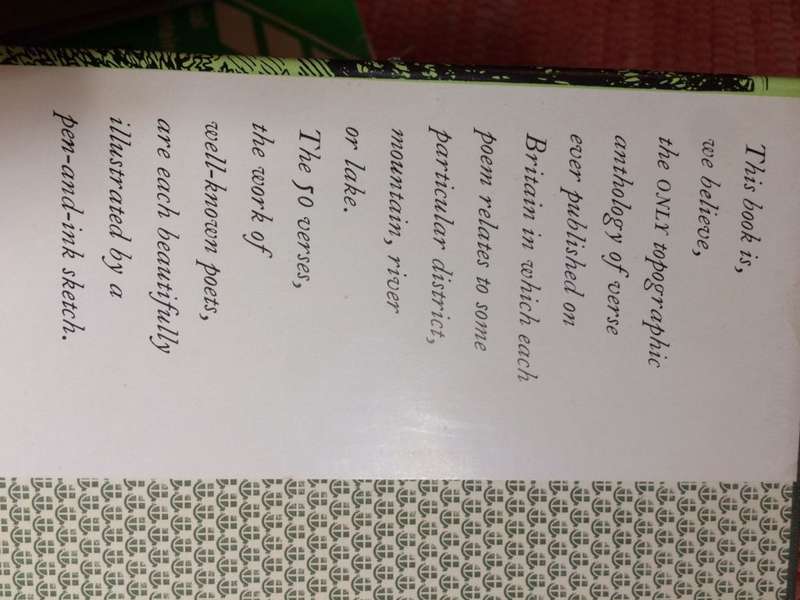 This book is,
we believe,
the ONLY topographic
anthology of verse
ever published on
Britain in which each
poem relates to some
particular district,
mountain, river
or lake.
The 50 verses,
the work of
well-known poets,
are each beautifully
illustrated by a
pen-and-ink sketch.